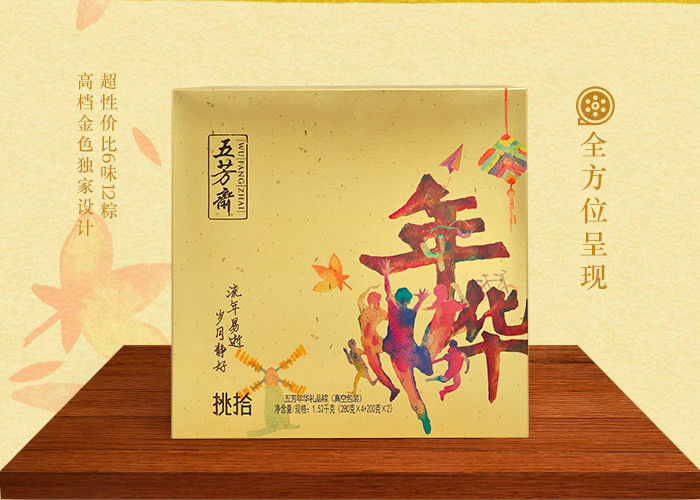 超性价比6味12粽
高档金色独家设计
全方位呈现
五芳斋
WU FANG ZHAI
年华
流年易逝
岁月静好
挑拾
五芳年华礼品粽（真空包装）
净含量/规格：1.52千克（280克×4+200克×2）